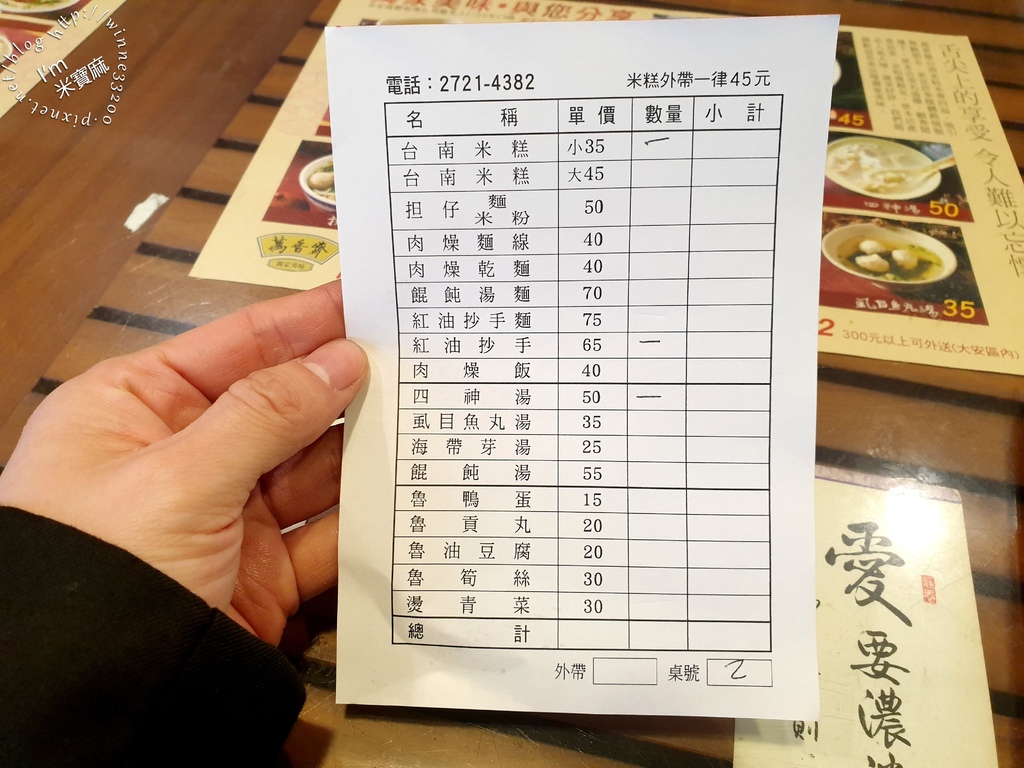 清味美味·與您分享
http://winne33200.pixnet.net/blog
I'm
米寶麻
電話：2721-4382 米糕外帶一律45元
名稱 單價 數量 小計
台南米糕 小35 一
台南米糕 大45
担仔麵米粉 50
肉燥麵線 40
肉燥乾麵 40
餛飩湯麵 70
紅油抄手麵 75
紅油抄手 65 一
肉燥飯 40
四神湯 50 一
虱目魚丸湯 35
海帶芽湯 25
餛飩湯 55
魯鴨蛋 15
魯貢丸 20
魯油豆腐 20
魯筍絲 30
燙青菜 30
總計
外帶 桌號 2
萬香齋
45
四神湯 50
虱目魚丸湯 35
2 300元以上可外送(大安區內)
舌尖上的享受 令人難以忘懷
愛要濃
則